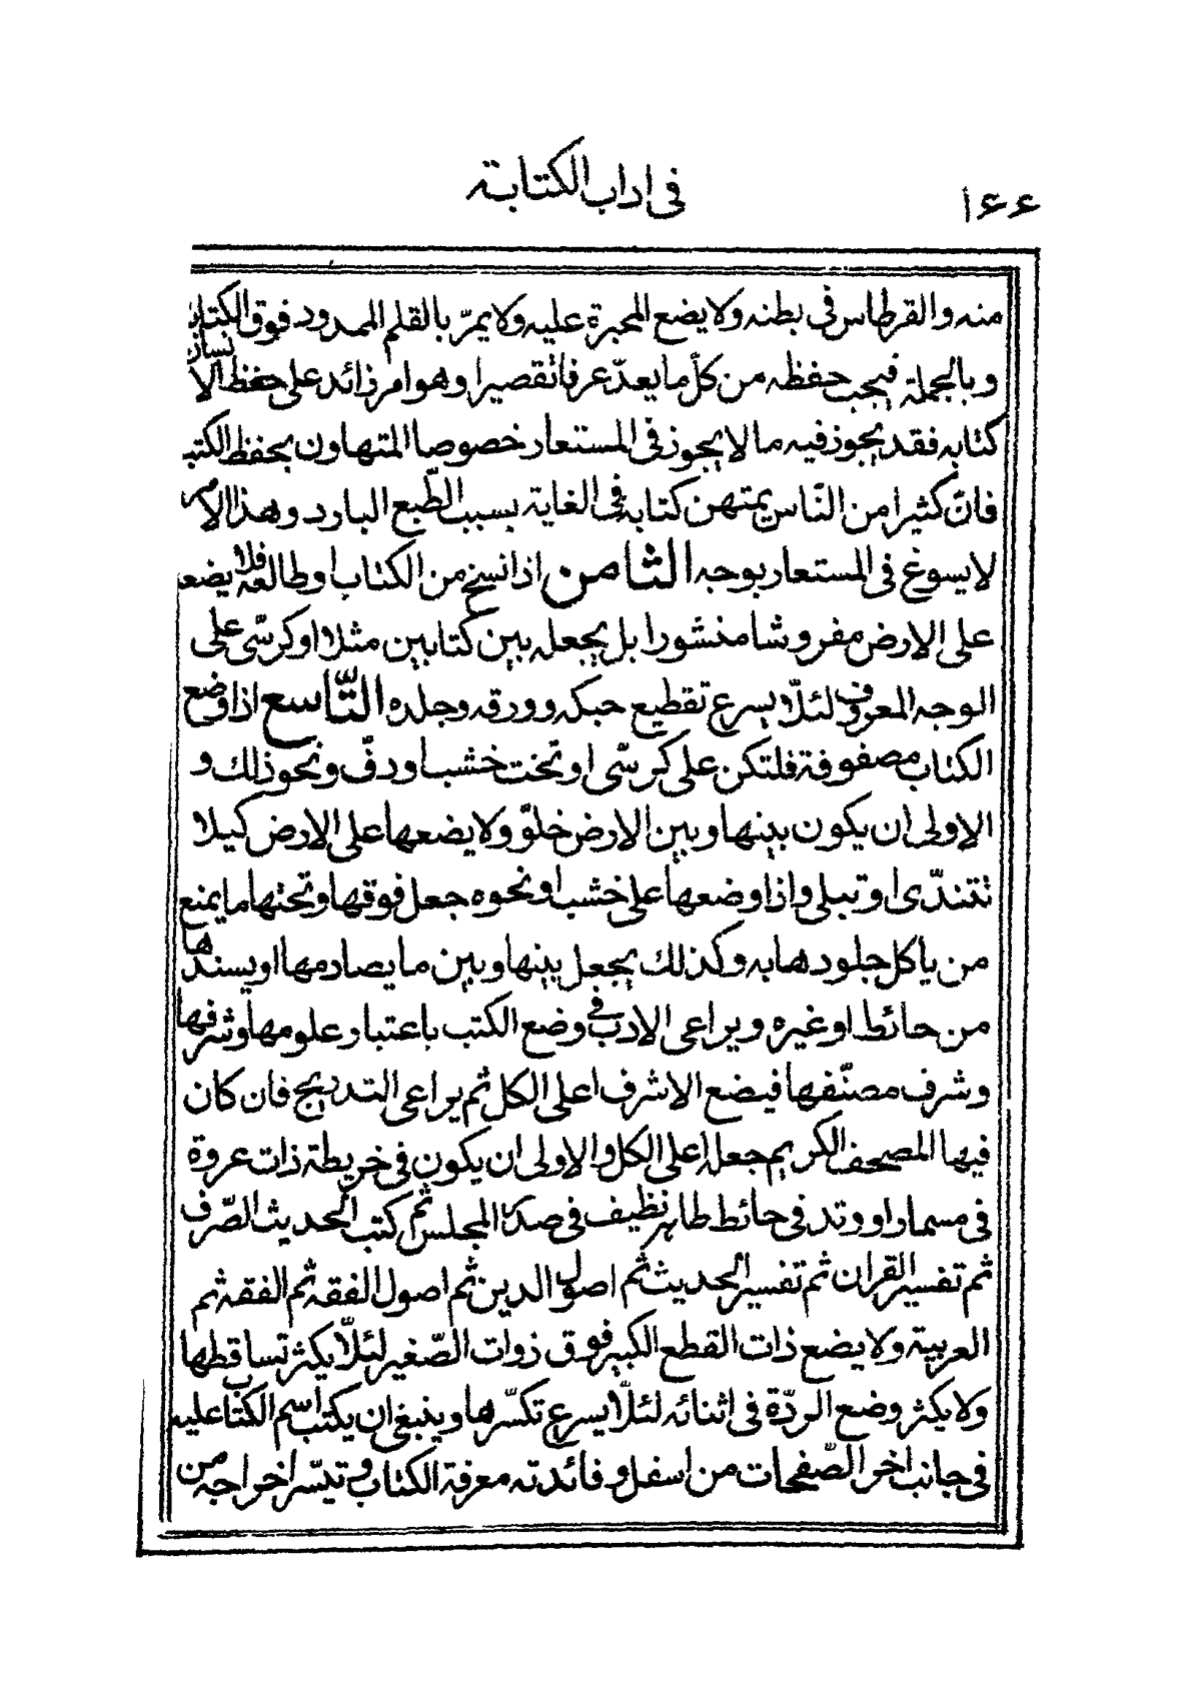 في اداب الكتابة
١٤٤
منه والقرطاس في بطنه ولا يضع المحبرة عليه ولا يمرّ بالقلم الممدود فوق الكتابة
وبالجملة فيجب حفظه من كلّ ما يعدّ عرفا تقصيرا وهو امر زائد على حفظ الانسان
كتابه فقد يجوز فيه ما لا يجوز في المستعار خصوصا المتهاون بحفظ الكتب
فانّ كثيرا من النّاس يمتهن كتابه في الغاية بسبب الطّبع البارد وهذا الامر
لا يسوغ في المستعار بوجه الثامن اذا نسخ من الكتاب او طالعه فلا يضعه
على الارض مفروشا منشورا بل يجعله بين كتابين مثلا او كرسّى على
الوجه المعروف لئلّا يسرع تقطيع حبكه وورقه وجلده التّاسع اذا وضع
الكتاب مصفوفة فلتكن على كرسّى او تخت خشب او دفّ ونحو ذلك و
الاولى ان يكون بينها وبين الارض خلوّ ولا يضعها على الارض كيلا
تتندّى او تبلى واذا وضعها على خشب او نحوه جعل فوقها وتحتها ما يمنع
من ياكل جلودها به وكذلك يجعل بينها وبين ما يصادمها او يسندها
من حائط او غيره ويراعى الادب في وضع الكتب باعتبار علومها وشرفها
وشرف مصنّفها فيضع الاشرف اعلى الكل ثم يراعى التدريج فان كان
فيها المصحف الكريم جعله اعلى الكل والاولى ان يكون في خريطة ذات عروة
في مسمار او وتد في حائط طاهر نظيف في صدر المجلس ثم كتب الحديث الصّرف
ثم تفسير القران ثم تفسير الحديث ثم اصول الدين ثم اصول الفقه ثم الفقه ثم
العربية ولا يضع ذات القطع الكبير فوق ذوات الصّغير لئلّا يكثر تساقطها
ولا يكثر وضع الردّة في اثنائه لئلّا يسرع تكسّرها وينبغى ان يكتب اسم الكتاب عليه
في جانب اخر الصّفحات من اسفل وفائدته معرفة الكتاب وتيسّر اخراجه من